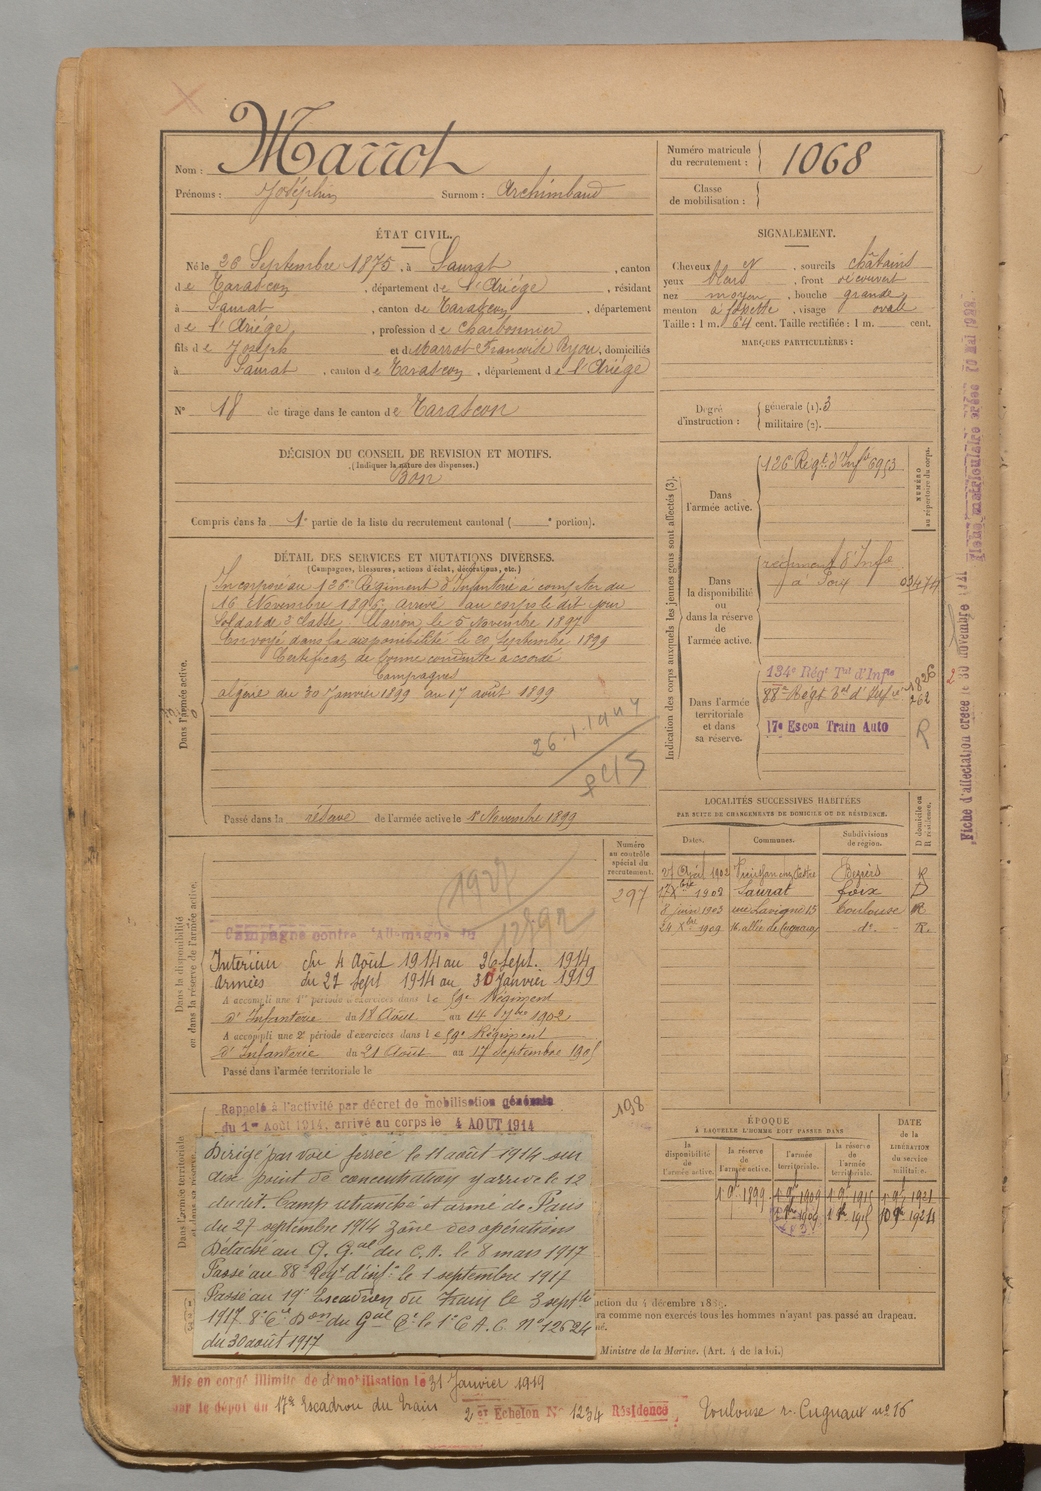 Nom : Marrot
Prénoms : Joséphin Surnom : Archimbaud
Numéro matricule du recrutement : 1068
Classe de mobilisation :
ÉTAT CIVIL.
Né le 26 Septembre 1875, à Saurat, canton
de Tarascon, département de l'Ariège, résidant
à Saurat, canton de Tarascon, département
de l'Ariège, profession de Charbonnier
fils de Joseph et de Marrot Françoise Ryou, domiciliés
à Saurat, canton de Tarascon, département de l'Ariège
N° 18 de tirage dans le canton de Tarascon
SIGNALEMENT.
Cheveux et, sourcils châtains
yeux bleus, front découvert
nez moyen, bouche grande,
menton à fossette, visage ovale
Taille : 1 m. 64 cent. Taille rectifiée : 1 m. cent.
MARQUES PARTICULIÈRES :
Degré d'instruction :
générale (1). 3
militaire (2).
DÉCISION DU CONSEIL DE REVISION ET MOTIFS.
(Indiquer la nature des dispenses.)
Bon
Compris dans la 1e partie de la liste du recrutement cantonal ( e portion).
DÉTAIL DES SERVICES ET MUTATIONS DIVERSES.
(Campagnes, blessures, actions d'éclat, décorations, etc.)
Dans l'armée active.
Incorporé au 126e Régiment d'Infanterie à compter du
16 Novembre 1896. arrivé au corps le dit jour
Soldat de 2e classe. Clairon le 5 Novembre 1897
Envoyé dans la disponibilité le 20 Septembre 1899
Certificat de bonne conduite accordé
Campagnes
algérie du 30 Janvier 1899 au 17 août 1899
Passé dans la réserve de l'armée active le 1er Novembre 1899
Indication des corps auxquels les jeunes gens sont affectés (3).
NUMÉRO au répertoire du corps.
Dans l'armée active.
126e Régt. d'Infie 6953
Dans la disponibilité ou dans la réserve de l'armée active.
régiment d'Infie
à Foix
Dans l'armée territoriale et dans sa réserve.
134e Régt Tal d'Infie
88me Régt d'Infie 262
17e Escon Train Auto R
LOCALITÉS SUCCESSIVES HABITÉES
PAR SUITE DE CHANGEMENTS DE DOMICILE OU DE RÉSIDENCE.
Dates. Communes. Subdivisions de région. D domicile ou R résidence.
1902 Béziers R
1902 Saurat foix D
8 juin 1903 rue Lavigne 15 Toulouse R
24 Xbre 1909 16 allée de Cugnaux do R.
Dans la disponibilité ou dans la réserve de l'armée active.
Numéro au contrôle spécial du recrutement.
297
Campagne contre l'Allemagne du
Intérieur du 4 Août 1914 au 26 Sept. 1914
armées du 27 Sept 1914 au 30 Janvier 1919
A accompli une 1re période d'exercices dans le 59e Régiment
d'Infanterie du 18 Août au 14 7bre 1902
A accompli une 2e période d'exercices dans le 59e Régiment
d'Infanterie du 21 Août au 17 septembre 1905
Passé dans l'armée territoriale le
Dans l'armée territoriale et dans sa réserve.
198
Rappelé à l'activité par décret de mobilisation générale
du 1er Août 1914, arrivé au corps le 4 AOUT 1914
Dirigé par voie ferrée le 11 août 1914 sur
point de concentration y arrive le 12
dudit. Camp retranché et armé de Paris
du 27 septembre 1914 Zone des opérations
Détaché au G. Qal du C.A. le 8 mars 1917
Passé au 88e Régt d'infie le 1 septembre 1917
Passé au 19e Escadron du Train le 3 septbre
1917 8e Cie Don du Gal Ct le 1er C.A.C. No 12624
du 30 août 1917
ÉPOQUE
À LAQUELLE L'HOMME DOIT PASSER DANS
la disponibilité de l'armée active. la réserve de l'armée active. l'armée territoriale. la réserve de l'armée territoriale. DATE de la LIBÉRATION du service militaire.
1 9bre 1899 1 9bre 1909 1 9bre 1915 1 9bre 1921
ction du 4 décembre 1889.
ra comme non exercés tous les hommes n'ayant pas passé au drapeau.
Ministre de la Marine. (Art. 4 de la loi.)
Mis en congé illimité de démobilisation le 31 Janvier 1919
par le dépôt du 17e Escadron du Train 2 er Echelon N° 1234 Résidence Toulouse r. Cugnaux no 16
Fiche d'affectation créée le 30 novembre